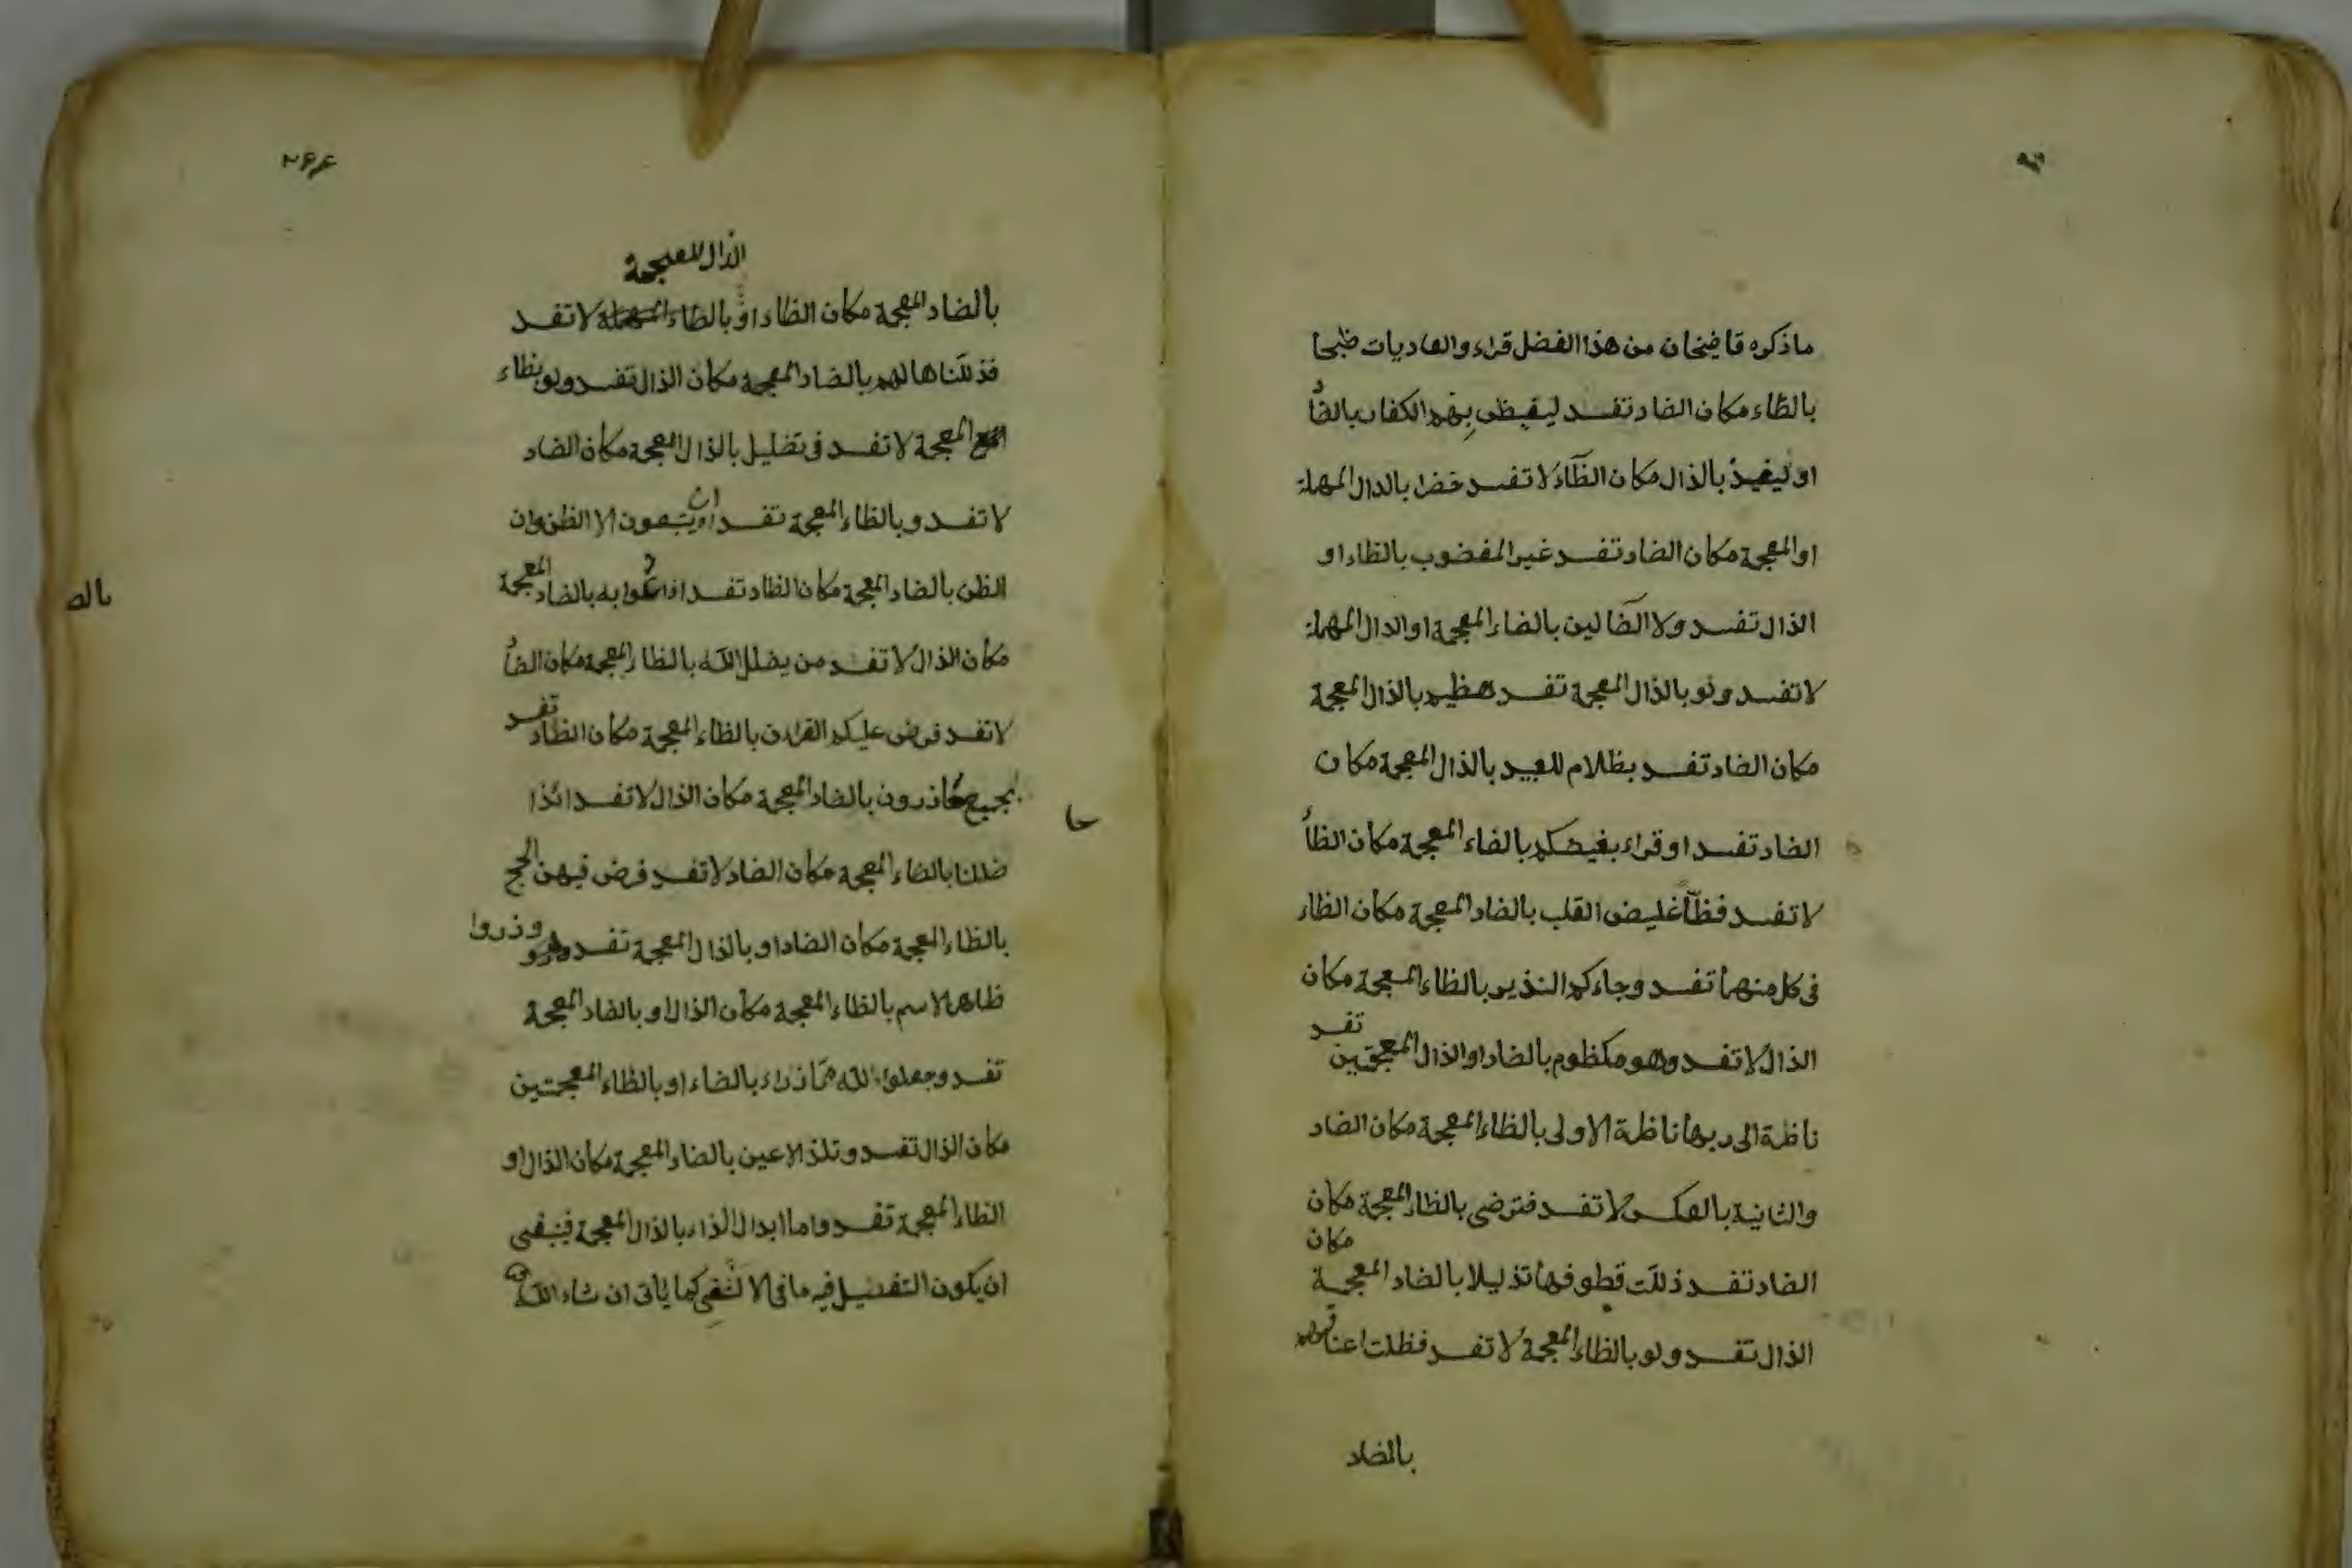 ماذكره قاضيخان من هذا الفصل قراء والعاديات ظبحا
بالظاء مكان الضاد تفسد ليغيظ بهم الكفار بالضاد
او ليغيذ بالذال مكان الظاء لا تفسد خضرا بالدال المهملة
او المعجمة مكان الضاد تفسد غير المغضوب بالظاء او
الذال تفسد ولا الضالين بالضاء المعجمة او الدال المهملة
لا تفسد ولو بالذال المعجمة تفسد هظيم بالذال المعجمة
مكان الضاد تفسد بظلام للعبيد بالذال المعجمة مكان
الضاد تفسد او قراء بغيضكم بالضاء المعجمة مكان الظاء
لا تفسد فظا غليض القلب بالضاد المعجمة مكان الظاء
فى كل منهما تفسد وجاءكم النذير بالظاء المعجمة مكان
الذال لا تفسد وهو مكظوم بالضاد او الذال المعجمتين تفسد
ناظرة الى ربها ناظرة الاولى بالظاء المعجمة مكان الضاد
والثانية بالعكس لا تفسد فترضى بالظاء المعجمة مكان
الضاد تفسد ذللت قطوفها تذليلا بالضاد المعجمة مكان
الذال تفسد ولو بالظاء المعجمة لا تفسد فظلت اعناقهم
بالضاد
۲۶۶
الذال المعجمة
بالضاد المعجمة مكان الظاد او بالظاء لا تفسد
فذللناها لهم بالضاد المعجمة مكان الذال تفسد ولو بظاء
المعجمة لا تفسد فى تضليل بالذال المعجمة مكان الضاد
لا تفسد وبالظاء المعجمة تفسد ان يتبعون الا الظن وان
الظن بالضاد المعجمة مكان الظاد تفسد به بالضاد المعجمة
مكان الذال لا تفسد من يضلل الله بالظاء المعجمة مكان الضاد
لا تفسد فرض عليكم القران بالظاء المعجمة مكان الظاد تفسد
لجميع حاذرون بالضاد المعجمة مكان الذال لا تفسد ائذا
حا
ضللنا بالضاء المعجمة مكان الضاد لا تفسد فرض فيهن الحج
بالظاء المعجمة مكان الضاد او بالذال المعجمة تفسد وذروا
ظاهر الاسم بالظاء المعجمة مكان الذال او بالضاد المعجمة
تفسد وجعلوا لله مما ذراء بالضاء او بالظاء المعجمتين
مكان الذال تفسد وتلذ الاعين بالضاد المعجمة مكان الذال او
الظاء المعجمة تفسد واما ابدال الذاء بالذال المعجمة فينبغى
ان يكون التفصيل فيه ما فى الا لثغى كما يأتى ان شاء الله
بالص